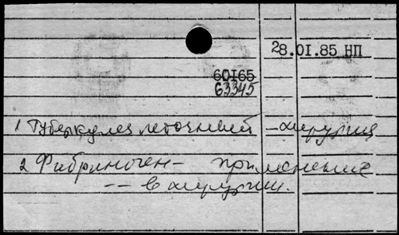 28.01.85 НП
60165
63345
1 Туберкулез легочный - хирургия
2 Фибриноген - применение
-- в хирургии.